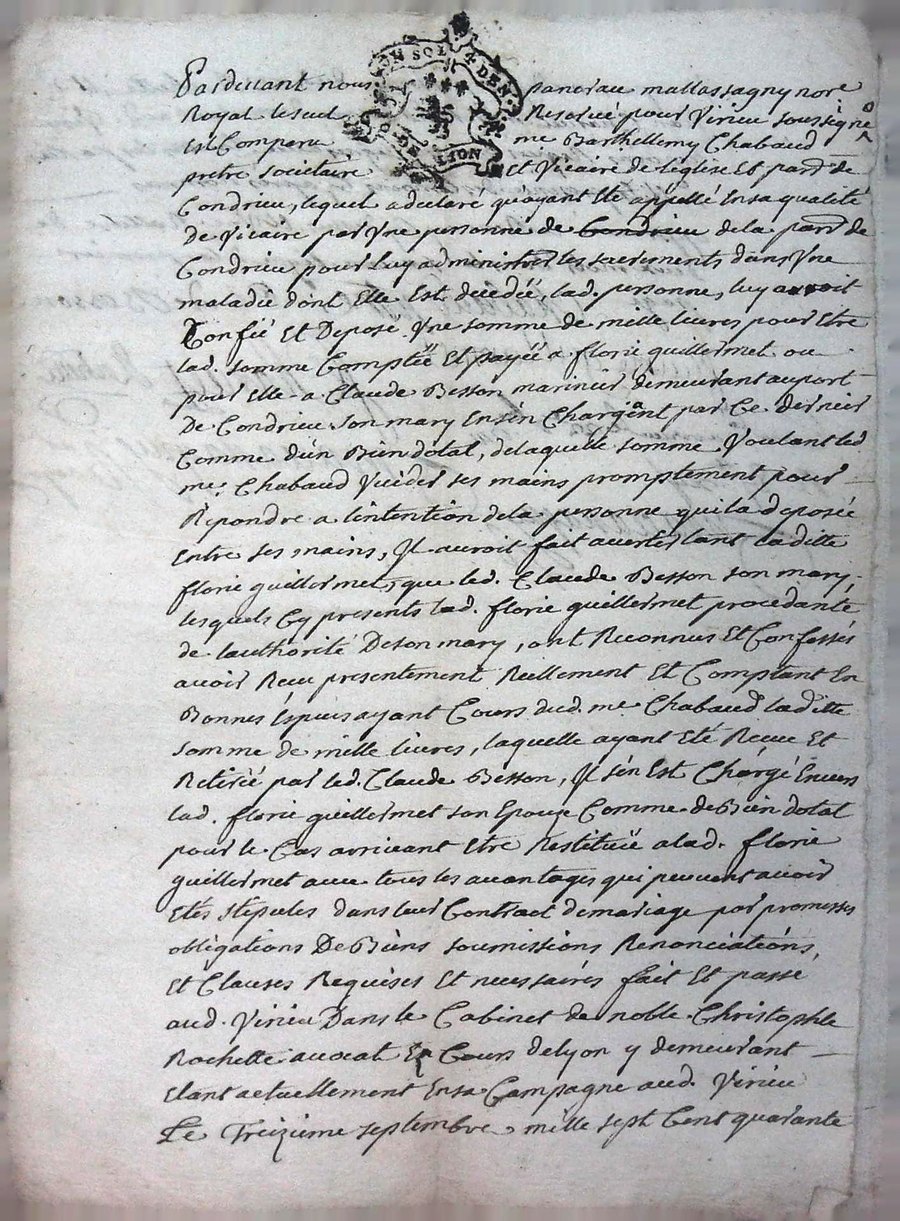 Pardevant nous pancrau mallassagny nore
Royal le seul Reservé pour Virieu soussigné
Est Comperu me Barthellemy Chabaud
pretre societaire et Vicaire de leglise Et parr. de
Condrieu, lequel a declaré qu'ayant Eté appellé En sa qualité
De Vicaire par Une personne de Condrieu de la parr. de
Condrieu pour Luy administrer les sacrements dans Une
maladie dont Elle Est decedée, lad. personne, luy auroit
Confié Et Deposé Une somme de mille livres pour Etre
lad. somme Comptëe Et payée a florie guillermet ou
pour Elle a Claude Besson marinier demeurant au port
De Condrieu son mary En s'en Chargeant par Ce dernier
Comme d'un Bien dotal, de laquelle somme Voulant led.
me. Chabaud Vuider ses mains promptement pour
Repondre a l'intention de la personne qui la deposée
Entre ses mains, Il auroit fait avertir tant laditte
florie guillermet, que led. Claude Besson son mary.
lesquels Cy presents lad. florie guillermet procedante
de lauthorité De son mary, ont Reconnus Et Confessés
avoir Receu presentement Reellement Et Comptant En
Bonnes Especes ayant Cours dud. me Chabaud laditte
somme de mille livres, laquelle ayant Eté Receue Et
Retirée par led. Claude Besson, Il s'en Est Chargé Envers
lad. florie guillermet son Epouze Comme de Bien dotal
pour le Cas arrivant Etre Restituëe a lad. florie
guillermet avec tous les avantages qui peuvent avoir
Etés stipules dans leur Contract de mariage par promesses
obligations De Biens soumissions Renonciations,
Et Clauses Requises Et necessaires fait Et passé
aud. Virieu Dans le Cabinet de noble Christophle
Rochette avocat En Cours de lyon y demeurant
Etant actuellement En sa Campagne aud. Virieu
Le Treizieme septembre mille sept Cent quarante
SOL 4 DEN.
LION